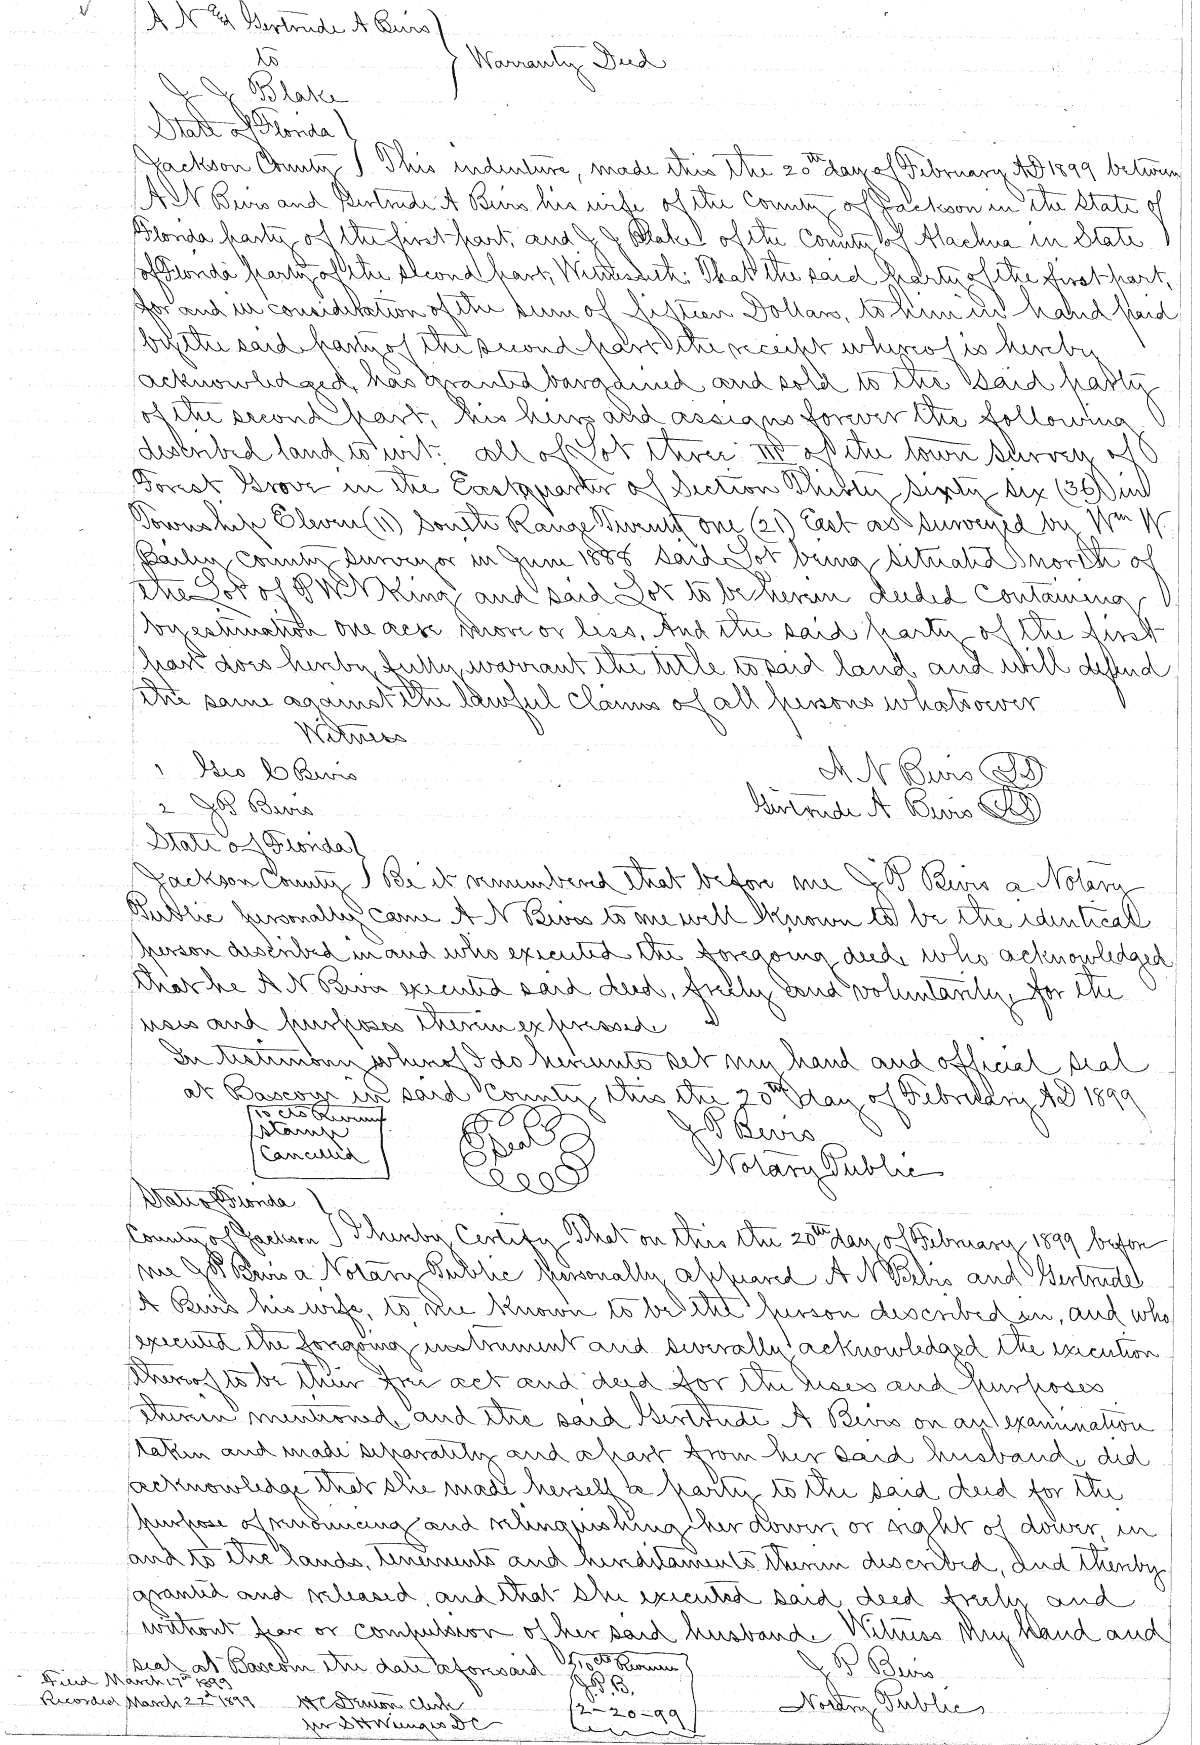 A N & Gertrude A Bevis
to
Warranty Deed
J J Blake
State of Florida
Jackson County This indenture, made this the 20th day of February AD 1899 between
A N Bevis and Gertrude A Bevis his wife of the County of Jackson in the State of
Florida party of the first part, and J J Blake of the County of Alachua in State
of Florida party of the second part, Witnesseth: That the said party of the first part,
for and in consideration of the sum of fifteen Dollars, to him in hand paid
by the said party of the second part the receipt whereof is hereby
acknowledged, has granted bargained and sold to the said party
of the second part, his heirs and assigns forever the following
described land to wit: all of Lot three III of the town survey of
Forest Grove in the East quarter of Section Thirty sixty six (36) in
Township Eleven (11) South Range Twenty one (21) East as surveyed by Wm W.
Bailey County surveyor in June 1888 said Lot being situated north of
the Lot of P W N King and said Lot to be herein deeded containing
by estimation one acre more or less, And the said party of the first
part does hereby fully warrant the title to said land and will defend
the same against the lawful claims of all persons whatsoever
Witness
1 Geo C Bevis A N Bevis LS
2 J P Bevis Gertrude A Bevis LS
State of Florida
Jackson County Be it remembered that before me J P Bevis a Notary
Public personally came A N Bevis to me well known to be the identical
person described in and who executed the foregoing deed, who acknowledged
that he A N Bevis executed said deed, freely and voluntarily, for the
uses and purposes therein expressed
In testimony whereof I do hereunto set my hand and official seal
at Bascom in said County this the 20th day of February AD 1899
10 cts Revenue
Stamp
Cancelled
Seal
J P Bevis
Notary Public
State of Florida
County of Jackson I hereby Certify That on this the 20th day of February 1899 before
me J P Bevis a Notary Public personally appeared A N Bevis and Gertrude
A Bevis his wife, to me known to be the person described in, and who
executed the foregoing instrument and severally acknowledged the execution
thereof to be their free act and deed for the uses and purposes
therein mentioned, and the said Gertrude A Bevis on an examination
taken and made separately and apart from her said husband, did
acknowledge that she made herself a party to the said deed for the
purpose of renouncing and relinquishing her dower, or right of dower, in
and to the lands, tenements and hereditaments therein described, and thereby
granted and released, and that she executed said deed freely and
without fear or compulsion of her said husband. Witness my hand and
seal at Bascom the date aforesaid
10 cts Revenue
J.P.B.
2-20-99
J P Bevis
Notary Public
Filed March 17th 1899
Recorded March 22d 1899
H C Clerk
per S H Wienges DC